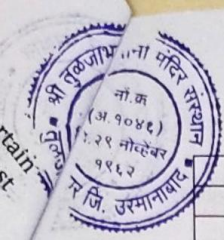 श्री तुळजाभवानी मंदिर संस्थान
नों.क
(अ.१०४६)
२९ नोव्हेंबर
१९६२
जि. उस्मानाबाद
tain
st